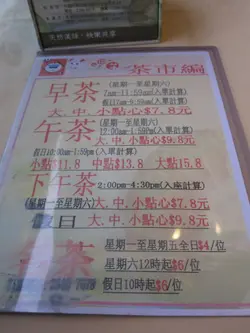 茶市編
早茶
(星期一至星期六)
7am-11:59am(入單計算)
假日7am-9:59am(入單計算)
大.中.小點心$7.8元
午茶
(星期一至星期六)
12:00am-1:59Pm(入單計算)
大.中.小點心$9.8元
假日
10:00am-1:59pm(入單計算)
小點$11.8 中點$13.8 大點15.8
下午茶
2:00pm-4:30pm(入座計算)
(星期一至星期六)大.中.小點心$7.8元
假日 大.中.小點心$9.8元
茶
星期一至星期五全日$4/位
星期六12時起$6/位
假日10時起$6/位